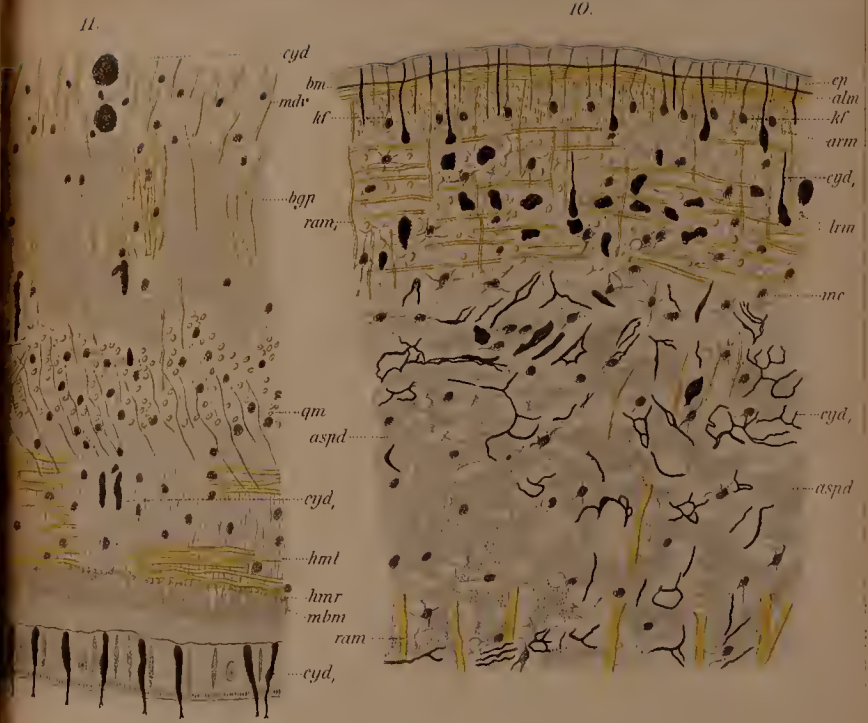 11.
cyd
mdv
bgp
qm
cyd,
hml
hmr
mbm
cyd,
10.
bm
kf
ram,
aspd
ram
ep
alm
kf
arm
cyd,
lrm
mc
cyd,
aspd